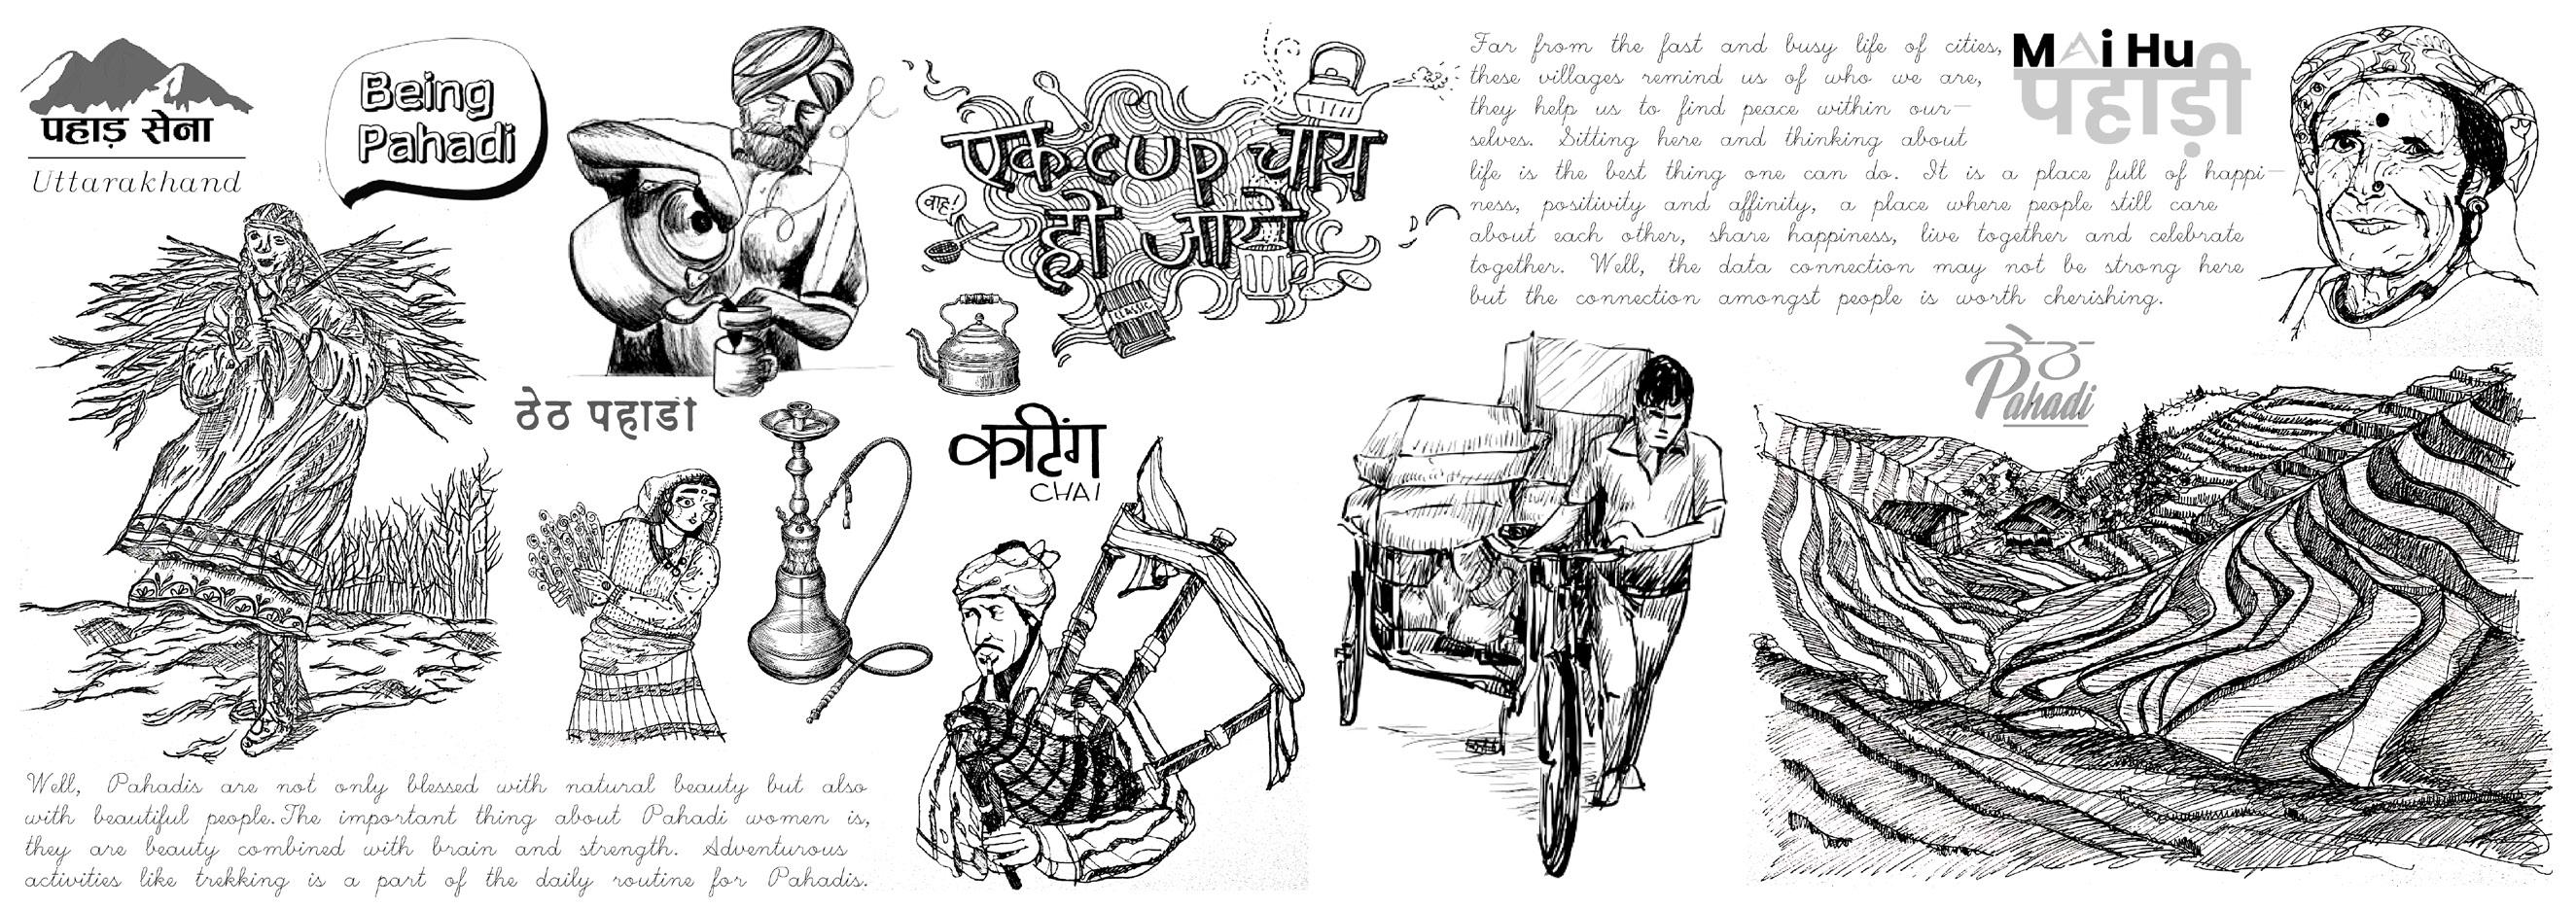 पहाड़ सेना
Uttarakhand
Being
Pahadi
एक cup चाय
हो जाये
वाह!
CLASSIC
Far from the fast and busy life of cities,
these villages remind us of who we are,
they help us to find peace within our-
selves. Sitting here and thinking about
life is the best thing one can do. It is a place full of happi-
ness, positivity and affinity, a place where people still care
about each other, share happiness, live together and celebrate
together. Well, the data connection may not be strong here
but the connection amongst people is worth cherishing.
Mai Hu
पहाड़ी
ठेठ
Pahadi
ठेठ पहाडी
कटिंग
CHAI
Well, Pahadis are not only blessed with natural beauty but also
with beautiful people. The important thing about Pahadi women is,
they are beauty combined with brain and strength. Adventurous
activities like trekking is a part of the daily routine for Pahadis.